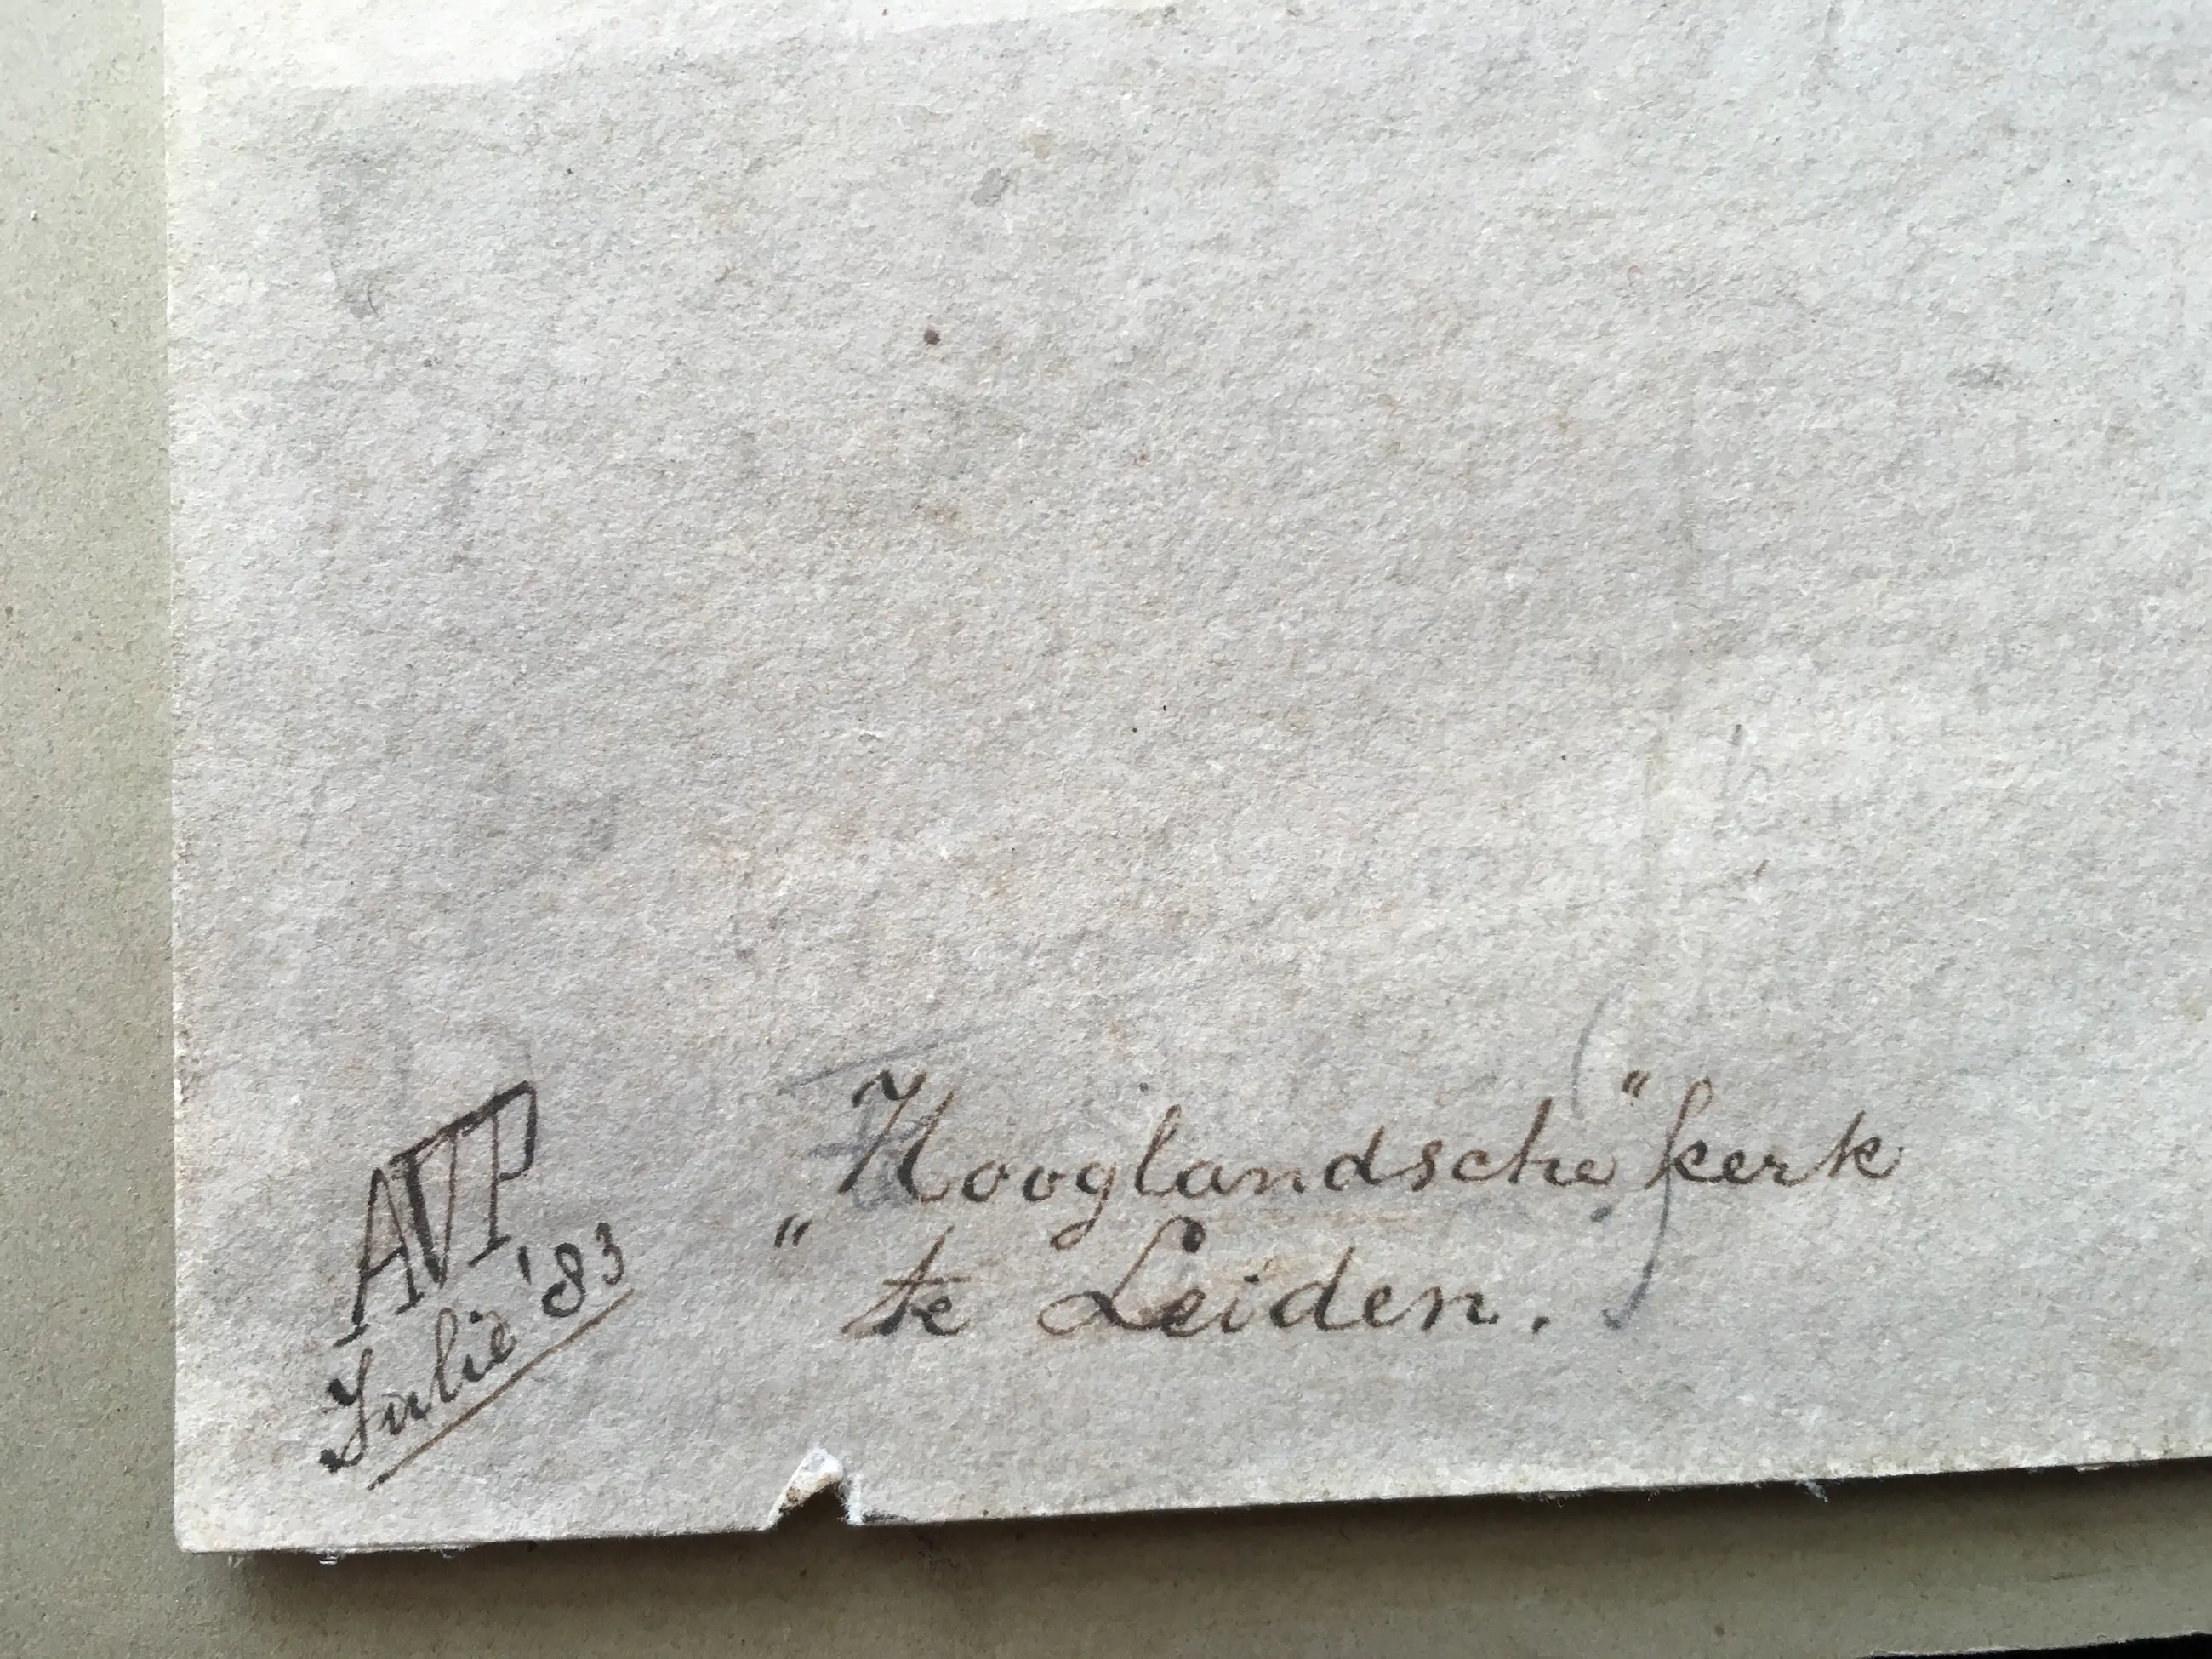 AVP
Julie '83
„Hooglandsche" kerk
te Leiden.